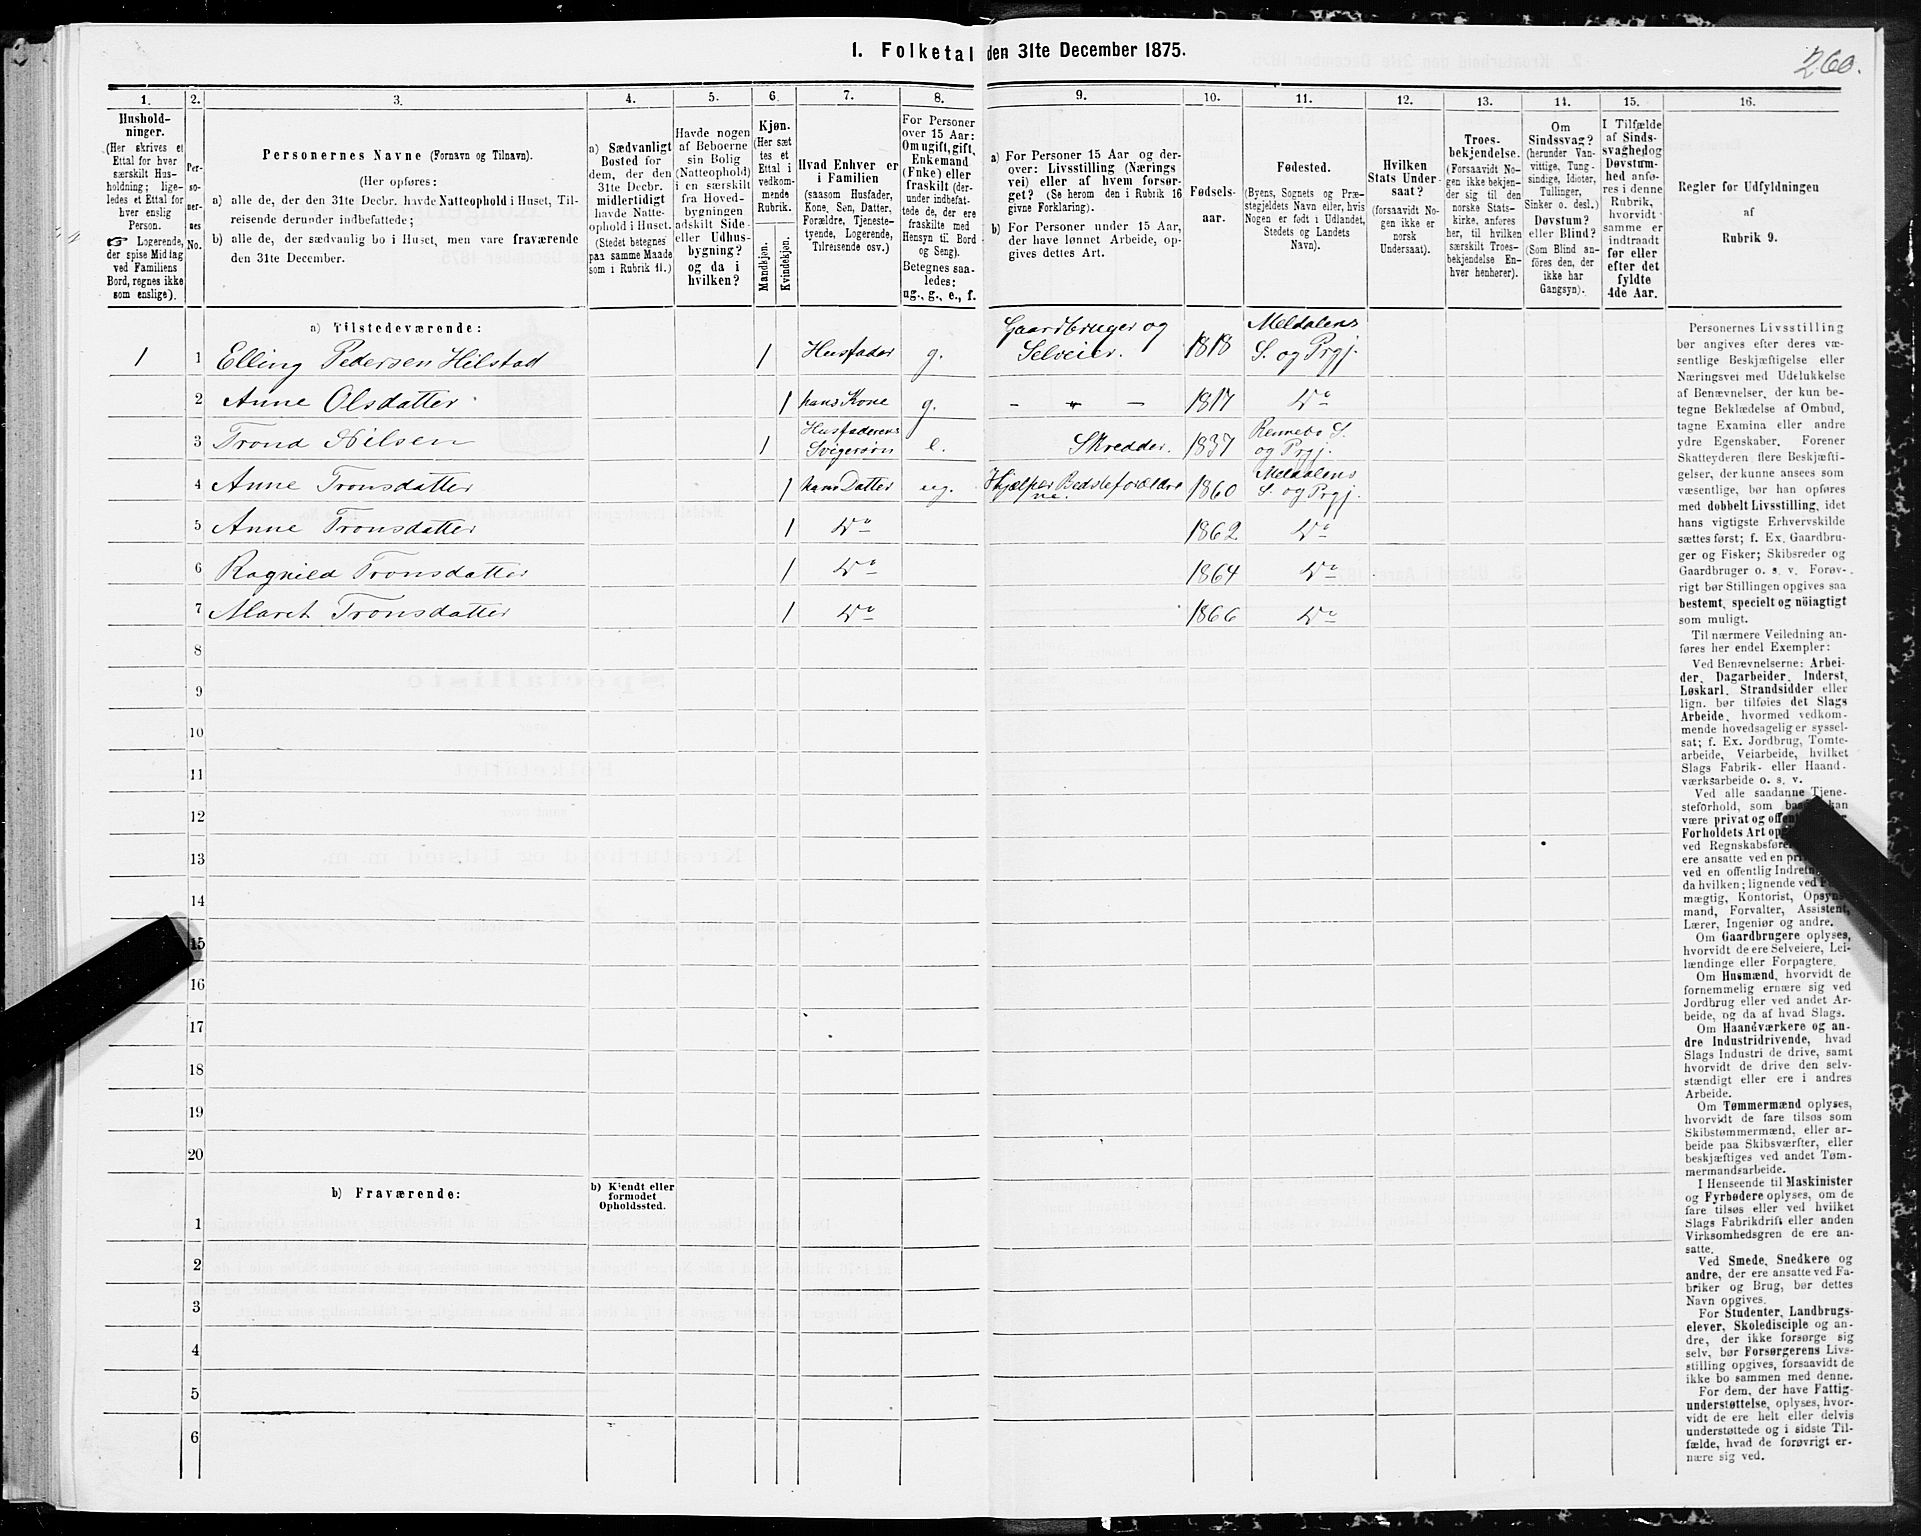 1. Folketal den 31te December 1875.
260.
1. 2. 3. 4. 5. 6. 7. 8. 9. 10. 11. 12. 13. 14. 15. 16.
Hushold-
ninger.
(Her skrives et
Ettal for hver
særskilt Hus-
holdning; lige-
ledes et Ettal for
hver enslig
Person.
☞ Logerende,
der spise Middag
ved Familiens
Bord, regnes ikke
som enslige).
Per-
so-
ner-
nes
No.
Personernes Navne (Fornavn og Tilnavn).
(Her opføres:
a) alle de, der den 31te Decbr. havde Natteophold i Huset, Til-
reisende derunder indbefattede;
b) alle de, der sædvanlig bo i Huset, men vare fraværende
den 31te December.
a) Sædvanligt
Bosted for
dem, der den
31te Decbr.
midlertidigt
havde Natte-
ophold i Huset.
(Stedet betegnes
paa samme Maade
som i Rubrik 11.)
Havde nogen
af Beboerne
sin Bolig
(Natteophold)
i en særskilt
fra Hoved-
bygningen
adskilt Side-
eller Udhus-
bygning?
og da i
hvilken?
Kjøn.
(Her sæt
tes et
Ettal i
vedkom-
mende
Rubrik.
Mandkjøn.
Kvindekjøn.
Hvad Enhver er
i Familien
(saasom Husfader,
Kone, Søn, Datter,
Forældre, Tjeneste-
tyende, Logerende,
Tilreisende osv.)
For Personer
over 15 Aar:
Om ugift, gift,
Enkemand
(Enke) eller
fraskilt (der-
under indbefat-
tede de, der ere
fraskilte med
Hensyn til Bord
og Seng).
Betegnes saa-
ledes:
ug., g., e., f.
a) For Personer 15 Aar og der-
over: Livsstilling (Nærings
vei) eller af hvem forsør-
get? (Se herom den i Rubrik 16
givne Forklaring).
b) For Personer under 15 Aar,
der have lønnet Arbeide, op-
gives dettes Art.
Fødsels-
aar.
Fødested.
(Byens, Sognets og Præ-
stegjeldets Navn eller, hvis
Nogen er født i Udlandet,
Stedets og Landets
Navn).
Hvilken
Stats Under-
saat?
(forsaavidt No-
gen ikke er
norsk
Undersaat).
Troes-
bekjendelse.
(Forsaavidt No-
gen ikke bekjen-
der sig til den
norske Stats-
kirke, anføres
her, til hvilken
særskilt Troes-
bekjendelse En-
hver henhører).
Om
Sindssvag?
(herunder Van-
vittige, Tung-
sindige, Idioter,
Tullinger,
Sinker o. desl.)
Døvstum?
eller Blind?
(Som Blind an-
føres den, der
ikke har
Gangsyn).
I Tilfælde
af Sinds-
svaghed og
Døvstum-
hed anfø-
res i denne
Rubrik,
hvorvidt
samme er
indtraadt
før eller
efter det
fyldte
4de Aar.
Regler for Udfyldningen
af
Rubrik 9.
a) Tilstedeværende:
1 1 Elling Pedersen Hilstad 1 Husfader g. Gaardbruger og Selveier. 1818 Meldalens S. og Prgj.
2 Anne Olsdatter 1 hans Kone g. - „ - 1817 Do
3 Trond Nilsen 1 Husfaderens Svigersøn e. Skredder. 1837 Rennebo S. og Prgj.
4 Anne Tronsdatter 1 hans Datter ug. Hjælper Bedsteforældrene. 1860 Meldalens S. og Prgj.
5 Anne Tronsdatter 1 Do 1862 Do
6 Ragnild Tronsdatter 1 Do 1864 Do
7 Maret Tronsdatter 1 Do 1866 Do
8
9
10
11
12
13
14
15
16
17
18
19
20
b) Fraværende:
b) Kjendt eller
formodet
Opholdssted.
1
2
3
4
5
6
Personernes Livsstilling
bør angives efter deres væ-
sentlige Beskjæftigelse eller
Næringsvei med Udelukkelse
af Benævnelser, der kun be-
tegne Beklædelse af Ombud,
tagne Examina eller andre
ydre Egenskaber. Forener
Skatteyderen flere Beskjæfti-
gelser, der kunne ansees som
væsentlige, bør han opføres
med dobbelt Livsstilling, idet
hans vigtigste Erhvervskilde
sættes først; f. Ex. Gaardbru-
ger og Fisker; Skibsreder og
Gaardbruger o. s. v. Forøv-
rigt bør Stillingen opgives saa
bestemt, specielt og nöiagtigt
som muligt.
Til nærmere Veiledning an-
føres her endel Exempler:
Ved Benævnelserne: Arbei-
der, Dagarbeider, Inderst,
Løskarl, Strandsidder eller
lign. bør tilføies det Slags
Arbeide, hvormed vedkom-
mende hovedsagelig er syssel-
sat; f. Ex. Jordbrug, Tomte-
arbeide, Veiarbeide, hvilket
Slags Fabrik- eller Haand-
værksarbeide o. s. v.
Ved alle saadanne Tjene-
steforhold, som kan
være privat og
Forholdets Art
ved Regnskabsfører
ere ansatte ved en
ved en offentlig
da hvilken; lignende ved
mægtig, Kontorist, Opsyns-
mand, Forvalter, Assistent,
Lærer, Ingeniør og andre.
Om Gaardbrugere oplyses,
hvorvidt de ere Selveiere, Lei-
lændinge eller Forpagtere.
Om Husmænd, hvorvidt de
fornemmelig ernære sig ved
Jordbrug eller ved andet Ar-
beide, og da af hvad Slags.
Om Haandværkere og an-
dre Industridrivende, hvad
Slags Industri de drive, samt
hvorvidt de drive den selv-
stændigt eller ere i andres
Arbeide.
Om Tømmermænd oplyses,
hvorvidt de fare tilsøs som
Skibstømmermænd, eller ar-
beide paa Skibsværfter, eller
beskjæftiges ved andet Tøm-
mermandsarbeide.
I Henseende til Maskinister
og Fyrbødere oplyses, om de
fare tilsøs eller ved hvilket
Slags Fabrikdrift eller anden
Virksomhedsgren de ere an-
satte.
Ved Smede, Snedkere og
andre, der ere ansatte ved Fa-
briker og Brug, bør dettes
Navn opgives.
For Studenter, Landbrugs-
elever, Skoledisciple og an-
dre, der ikke forsørge sig
selv, bør Forsørgerens Livs-
stilling opgives, forsaavidt de
ikke bo sammen med denne.
For dem, der have Fattig-
understøttelse, oplyses, hvor-
vidt de ere helt eller delvis
understøttede og i sidste Til-
fælde, hvad de forøvrigt er-
nære sig ved.